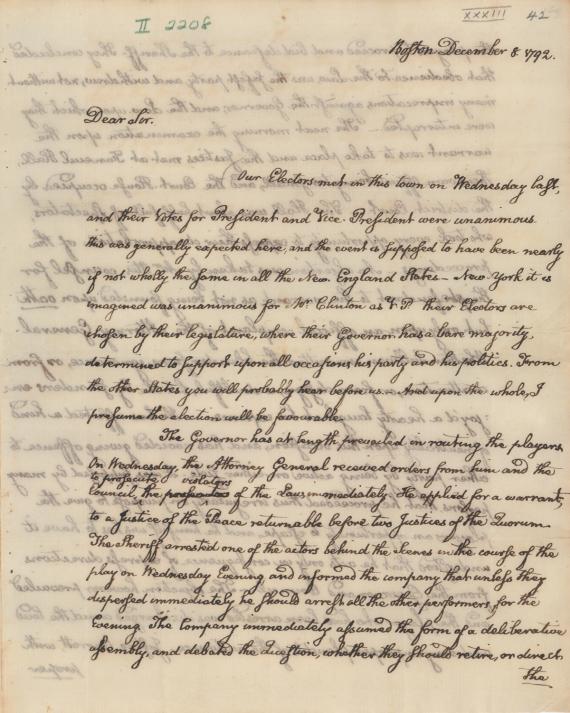 II 2208
XXXIII 42
Boston December 8. 1792.
Dear Sir.
Our Electors met in this town on Wednesday last,
and their Votes for President and Vice-President were unanimous.
this was generally expected here, and the event is supposed to have been nearly
if not wholly the same in all the New England States - New-York it is
imagined was unanimous for Mr Clinton as V.P. their Electors are
chosen by their legislature, where their Governor has a bare majority,
determined to support upon all occasions his party and his politics. From
the other States you will probably hear before us. - And upon the whole, I
presume the election will be favourable.
The Governor has at length prevailed in routing the players.
On Wednesday, the Attorney General received orders from him and the
to prosecute violators
Council, the of the Laws immediately. He applied for a warrant,
to a Justice of the Peace returnable before two Justices of the Quorum.
The Sheriff arrested one of the actors behind the scenes in the course of the
play on Wednesday Evening, and informed the company that unless they
dispersed immediately he should arrest all the other performers, for the
Evening. The Company immediately assumed the form of a deliberative
assembly, and debated the Question, whether they should retire, or direct,
the